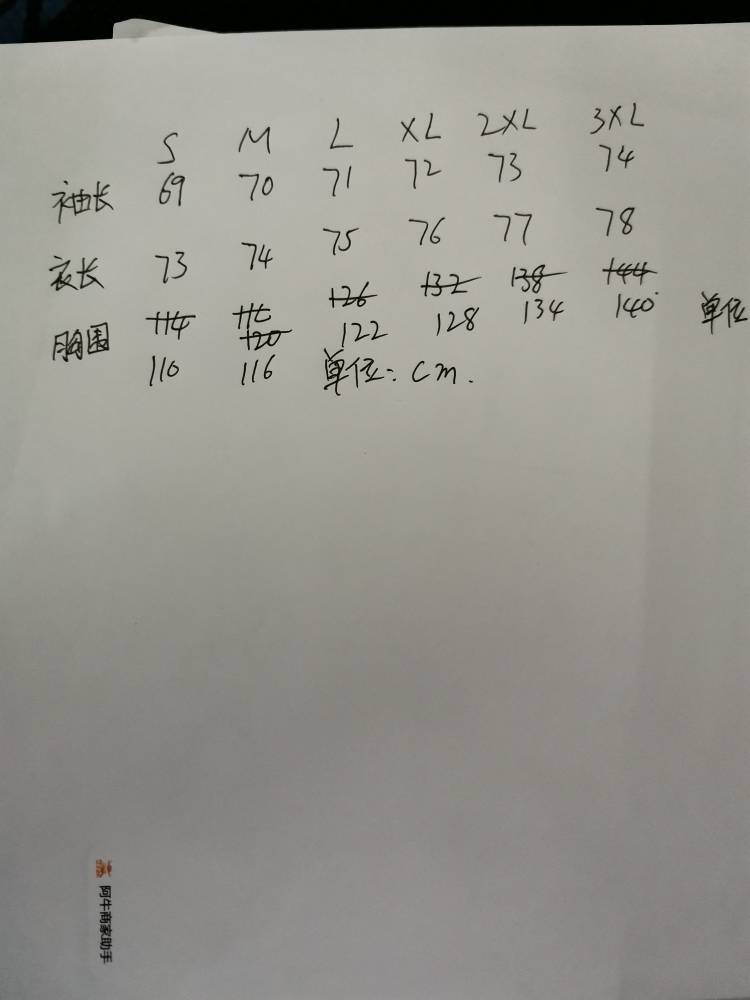 S M L XL 2XL 3XL
袖长 69 70 71 72 73 74
衣长 73 74 75 76 77 78
胸围 114 120 126 132 138 144
110 116 122 128 134 140 单位
单位：cm.
阿牛商家助手